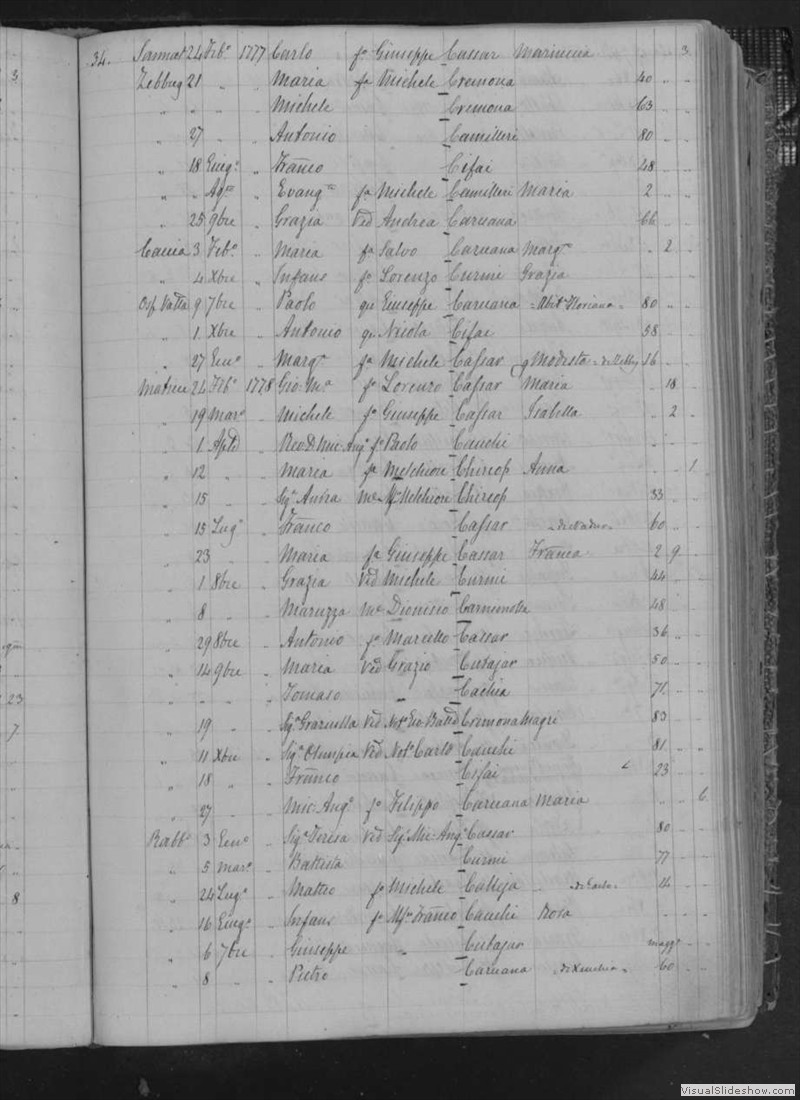 34. Sannat 24 Feb° 1777 Carlo f° Giuseppe Cassar Mariuccia 3
Zebbug 21 " " Maria fa Michele Cremona 40 " "
" " " Michele Cremona 63 " "
" 27 " " Antonio Camilleri 80 " "
" 18 Giug° " Franco Cifai 48 " "
" " Ag° " Evang fa Michele Camilleri Maria 2 " "
" 25 9bre " Grazia Ved Andrea Caruana 66 " "
3 Feb° " Maria fa Salvo Caruana Marg " 2 "
" 4 Xbre " Infans f° Lorenzo Curmi Grazia " " "
Osp Vatta 9 7bre " Paolo qu Giuseppe Caruana Abit Floriana 80 " "
" 1 Xbre " Antonio qu Nicola Cifai 58 " "
" 27 " Marg fa Michele Cassar q Modesta 56 " "
Matrice 24 Feb° 1778 Gio Ma f° Lorenzo Cassar Maria " 18 "
" 19 Mar° " Michele f° Giuseppe Cassar Isabella " 2 "
" 1 " Rev D. Mic Ang° f° Paolo Cauchi " " "
" 12 " " Maria fa Melchior Chircop Anna " " 1
" 15 " " Melchior Chircop 33 " "
" 15 Lug° " Franco Cassar 60 " "
" 23 " " Maria fa Giuseppe Cassar Franca 2 9
" 1 8bre " Grazia Ved Michele Curmi 44 " "
" 8 " " Maruzza Dionisio 48 " "
" 29 8bre " Antonio f° Marcello Cassar 36 " "
" 14 9bre " Maria Ved Grazio Cutajar 50 " "
" " " " Tomaso " Cachia 71 " "
" 19 " " Sig Graziulla Ved Not Gio Batta Cremona Magri 83 " "
" 11 Xbre " Sig Olimpia Ved Not Carlo Cauchi 81 " "
" 18 " " Franco Cifai 23 " "
" 27 " " Mic Ang° f° Filippo Caruana Maria " " 6
Rabb° 3 " Sig Teresa Ved Sig Mic Ang° Cassar 80 " "
" 5 Mar° " Battista Curmi 77 " "
" 24 Lug° " Matteo f° Michele Calleja 14 " "
" 16 Giug° " Infans f° Franco Cauchi Rosa " " "
" 6 7bre " Giuseppe " Cutajar magg " "
" 8 " " Pietro Caruana 60 " "
VisualSlideshow.com